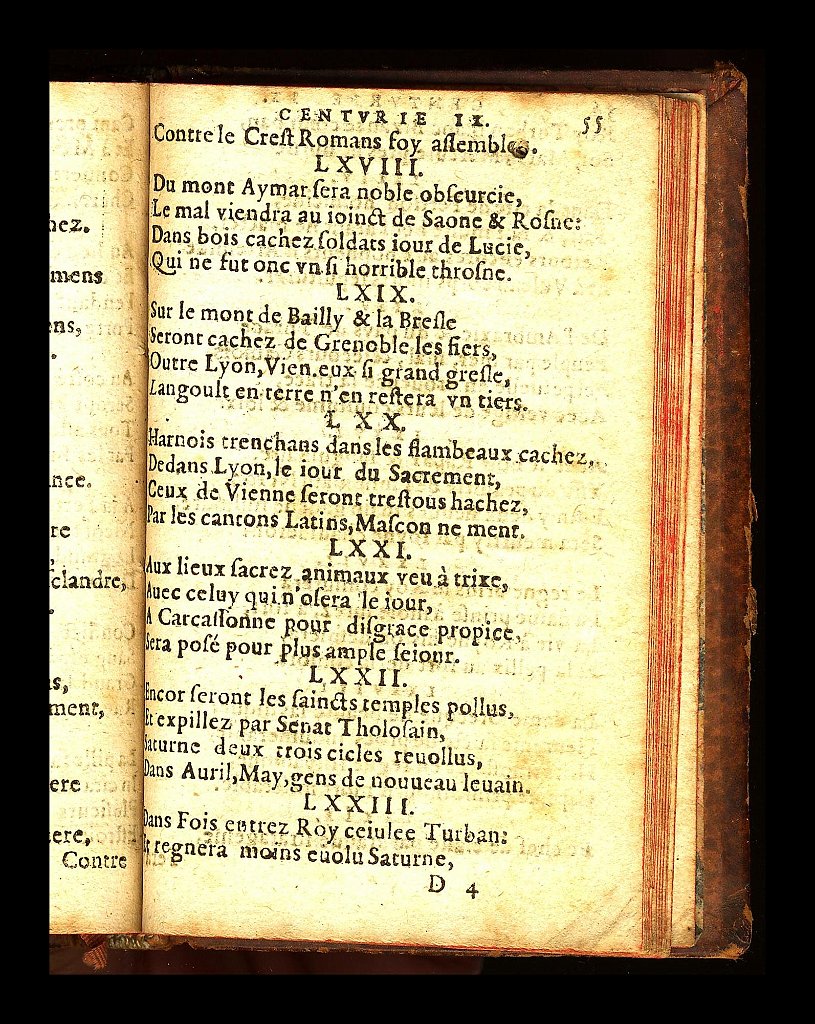 hez.
mens
ens,
ance.
re
clandre,
s,
ment,
ere
ere,
Contre
CENTVRIE IX. 55
Contre le Creſt Romans ſoy aſſemblez.
LXVIII.
Du mont Aymar ſera noble obſcurcie,
Le mal viendra au ioinct de Saone & Roſne:
Dans bois cachez ſoldats iour de Lucie,
Qui ne fut onc vn ſi horrible throſne.
LXIX.
Sur le mont de Bailly & la Breſle
Seront cachez de Grenoble les fiers,
Outre Lyon, Vien. eux ſi grand greſle,
Langoult en terre n'en reſtera vn tiers.
LXX.
Harnois trenchans dans les flambeaux cachez,
Dedans Lyon, le iour du Sacrement,
Ceux de Vienne ſeront treſtous hachez,
Par les cantons Latins, Maſcon ne ment.
LXXI.
Aux lieux ſacrez animaux veu à trixe,
Auec celuy qui n'oſera le iour,
A Carcaſſonne pour diſgrace propice,
Sera poſé pour plus ample ſeiour.
LXXII.
Encor ſeront les ſaincts temples pollus,
Et expillez par Senat Tholoſain,
Saturne deux trois cicles reuollus,
Dans Auril, May, gens de nouueau leuain.
LXXIII.
Dans Fois entrez Roy ceiulee Turban:
Et regnera moins euolu Saturne,
D 4